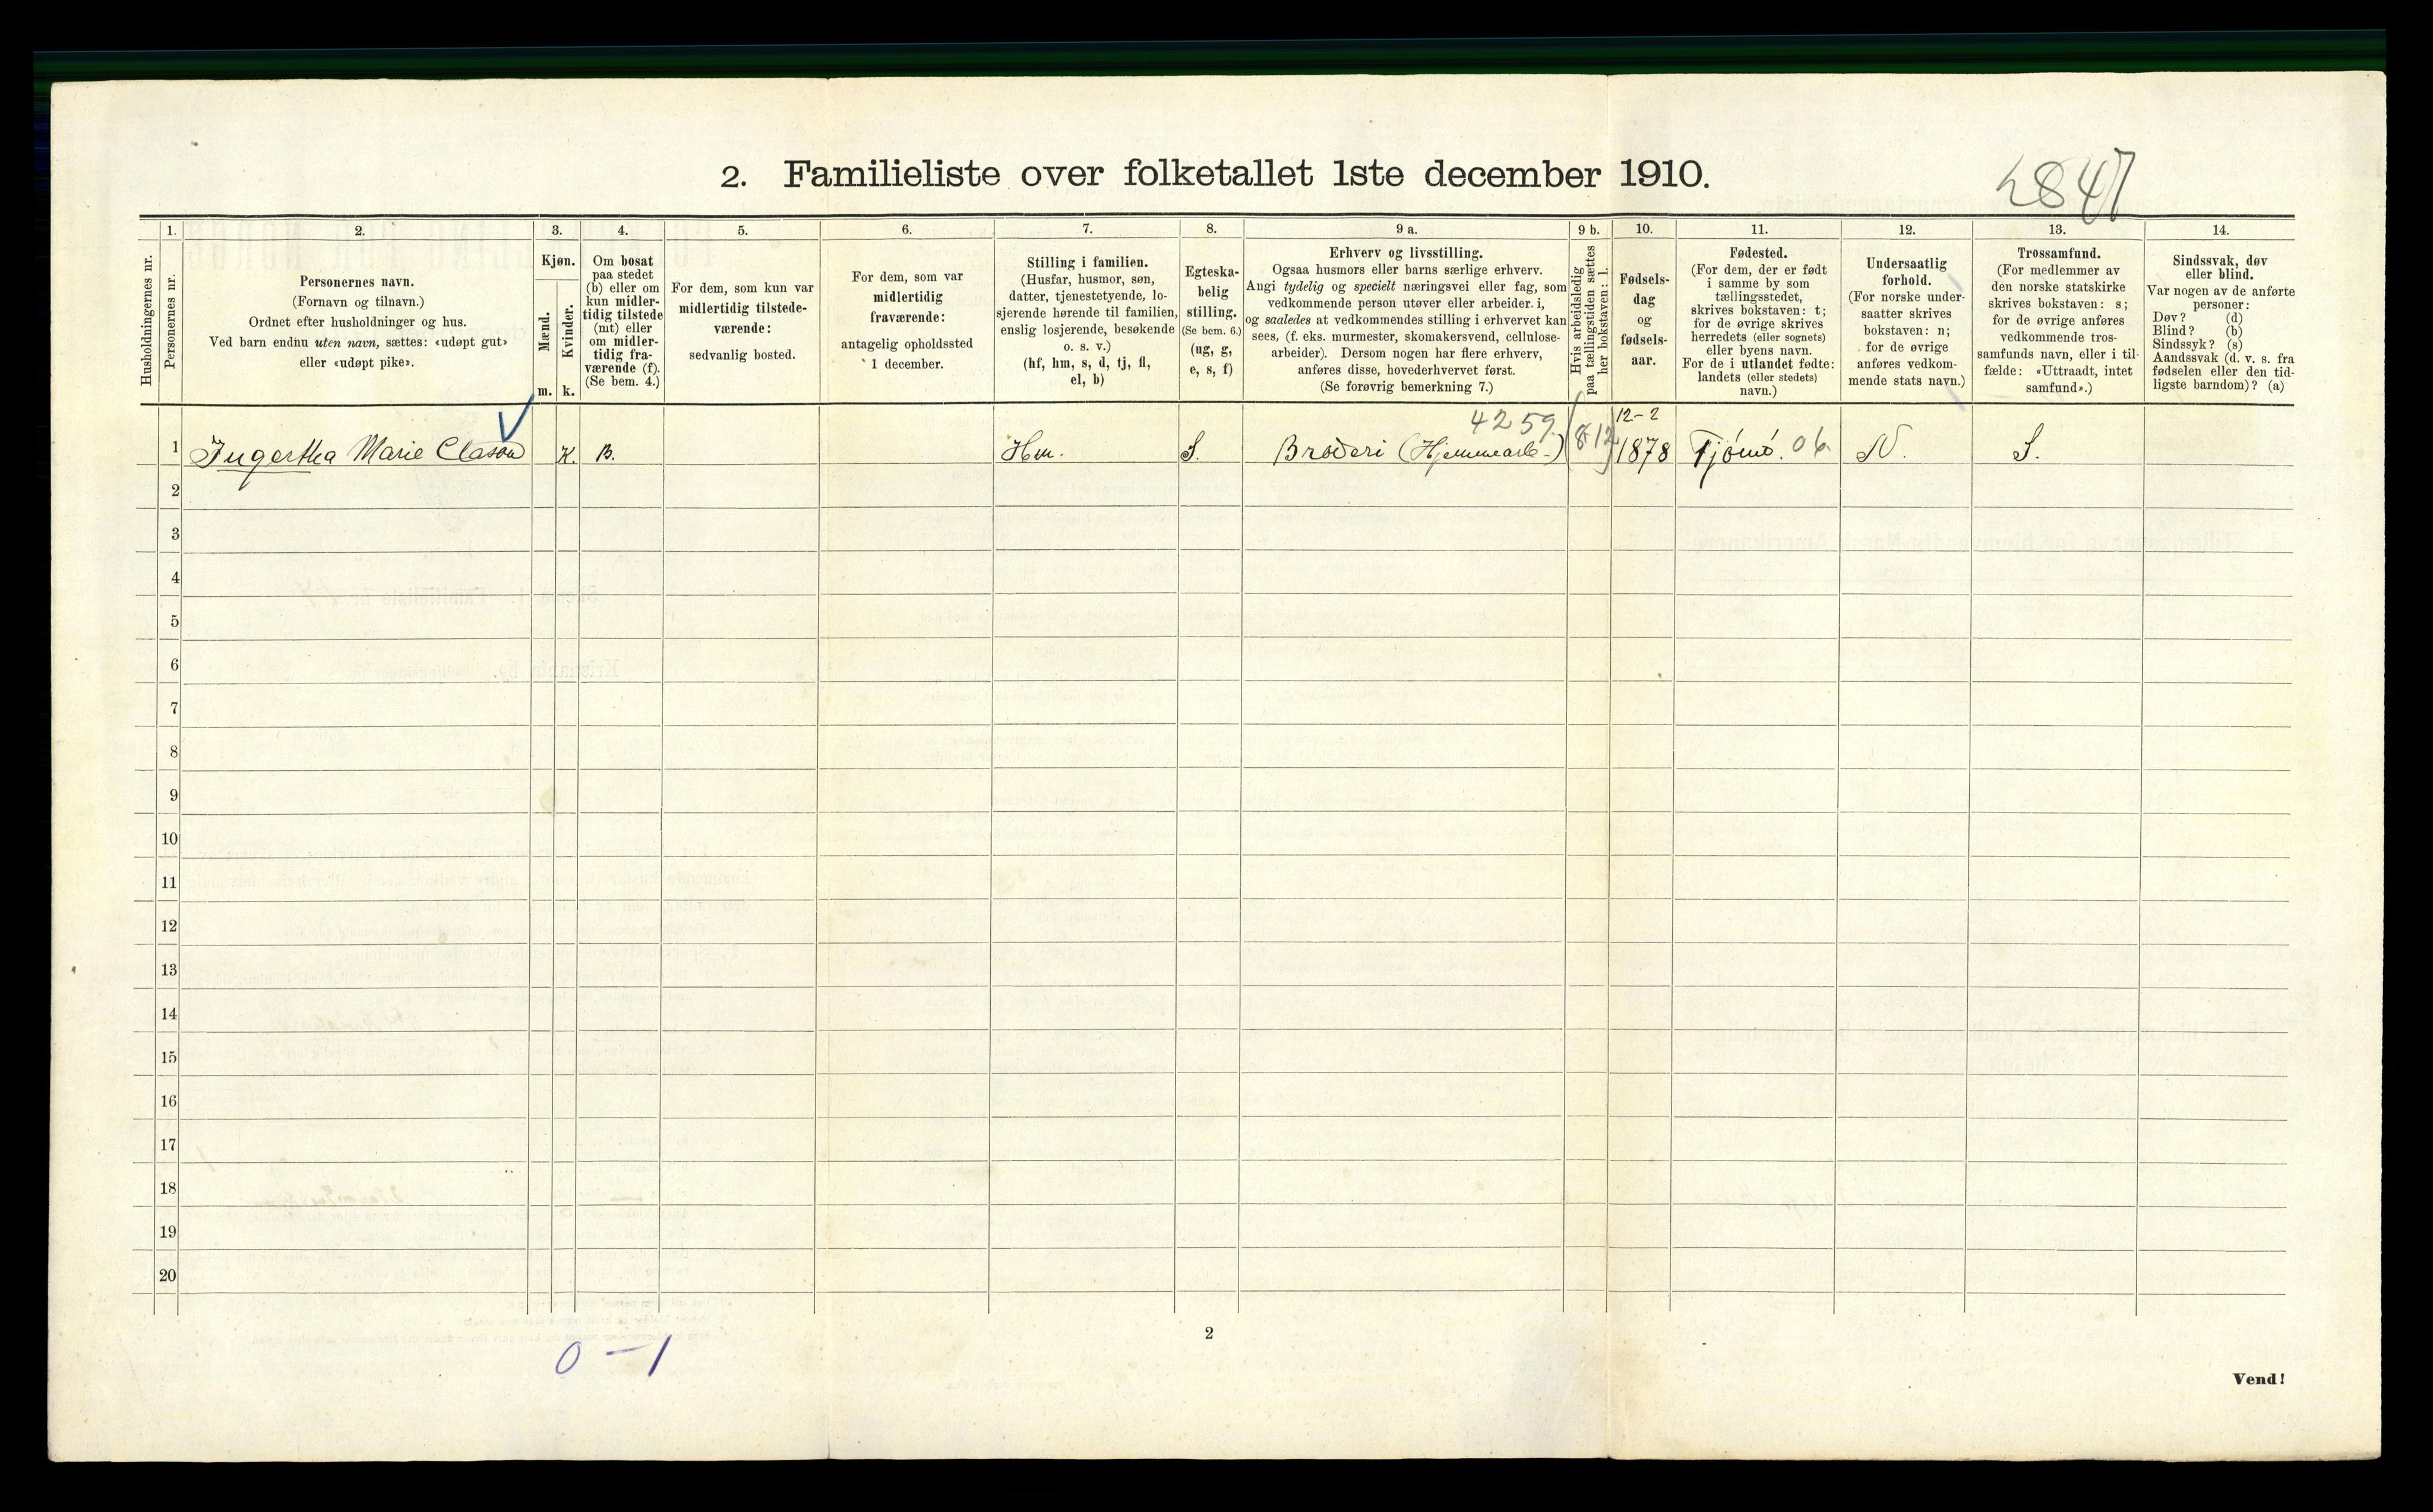 2. Familieliste over folketallet 1ste december 1910.
2847
1.
2.
3.
4.
5.
6.
7.
8.
9 a.
9 b.
10.
11.
12.
13.
14.
Husholdningernes nr.
Personernes nr.
Personernes navn.
(Fornavn og tilnavn.)
Ordnet efter husholdninger og hus.
Ved barn endnu uten navn, sættes: «udøpt gut»
eller «udøpt pike».
Kjøn.
Mænd.
m.
Kvinder.
k.
Om bosat
paa stedet
(b) eller om
kun midler-
tidig tilstede
(mt) eller
om midler-
tidig fra-
værende (f).
(Se bem. 4.)
For dem, som kun var
midlertidig tilstede-
værende:
sedvanlig bosted.
For dem, som var
midlertidig
fraværende:
antagelig opholdssted
1 december.
Stilling i familien.
(Husfar, husmor, søn,
datter, tjenestetyende, lo-
sjerende hørende til familien,
enslig losjerende, besøkende
o. s. v.)
(hf, hm, s, d, tj, fl,
el, b)
Egteska-
belig
stilling.
(Se bem. 6.)
(ug, g,
e, s, f)
Erhverv og livsstilling.
Ogsaa husmors eller barns særlige erhverv.
Angi tydelig og specielt næringsvei eller fag, som
vedkommende person utøver eller arbeider i,
og saaledes at vedkommendes stilling i erhvervet kan
sees, (f. eks. murmester, skomakersvend, cellulose-
arbeider). Dersom nogen har flere erhverv,
anføres disse, hovederhvervet først.
(Se forøvrig bemerkning 7.)
Hvis arbeidsledig
paa tællingstiden sættes
her bokstaven: l.
Fødsels-
dag
og
fødsels-
aar.
Fødested.
(For dem, der er født
i samme by som
tællingsstedet,
skrives bokstaven: t;
for de øvrige skrives
herredets (eller sognets)
eller byens navn.
For de i utlandet fødte:
landets (eller stedets)
navn.)
Undersaatlig
forhold.
(For norske under-
saatter skrives
bokstaven: n;
for de øvrige
anføres vedkom-
mende stats navn.)
Trossamfund.
(For medlemmer av
den norske statskirke
skrives bokstaven: s;
for de øvrige anføres
vedkommende tros-
samfunds navn, eller i til-
fælde: «Uttraadt, intet
samfund».)
Sindssvak, døv
eller blind.
Var nogen av de anførte
personer:
Døv? (d)
Blind? (b)
Sindssyk? (s)
Aandssvak (d. v. s. fra
fødselen eller den tid-
ligste barndom)? (a)
4259
12-2
1 Ingertha Marie Clason K. B. Hm. S. Broderi (Hjemmearb.) 1878 Tjömö. 06. N. S.
2
3
4
5
6
7
8
9
10
11
12
13
14
15
16
17
18
19
20
2
0 - 1
Vend!